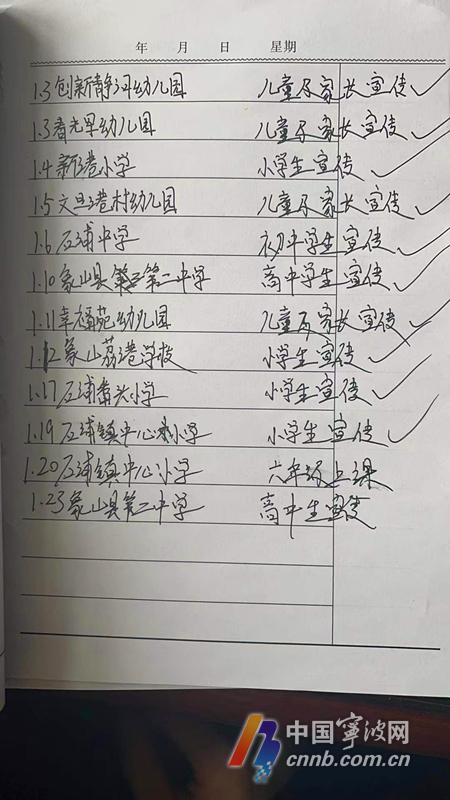 年 月 日 星期
1.3 创新静河幼儿园 儿童及家长宣传 ✓
1.3 春光里幼儿园 儿童及家长宣传 ✓
1.4 新港小学 小学生宣传 ✓
1.5 文旦港村幼儿园 儿童及家长宣传 ✓
1.6 石浦中学 初中学生宣传 ✓
1.10 象山县第一中学 高中学生宣传 ✓
1.11 幸福苑幼儿园 儿童及家长宣传 ✓
1.12 象山荔港学校 小学生宣传 ✓
1.17 石浦番头小学 小学生宣传 ✓
1.19 石浦镇中心小学 小学生宣传 ✓
1.20 石浦镇中心小学 六年级上课
1.23 象山县第二中学 高中生宣传
中国宁波网
cnnb.com.cn